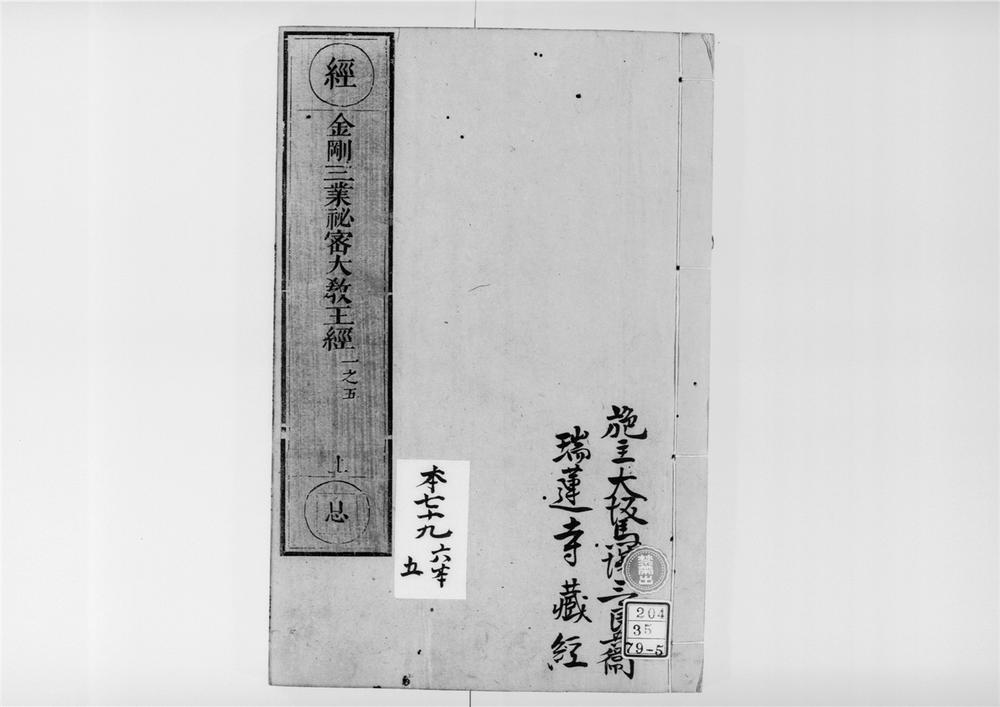 經
金剛三業祕密大教王經 一之五
上
息
本七十九
六本
五
施主大坂馬
瑞蓮寺藏經
禁帶出
204
35
79-5